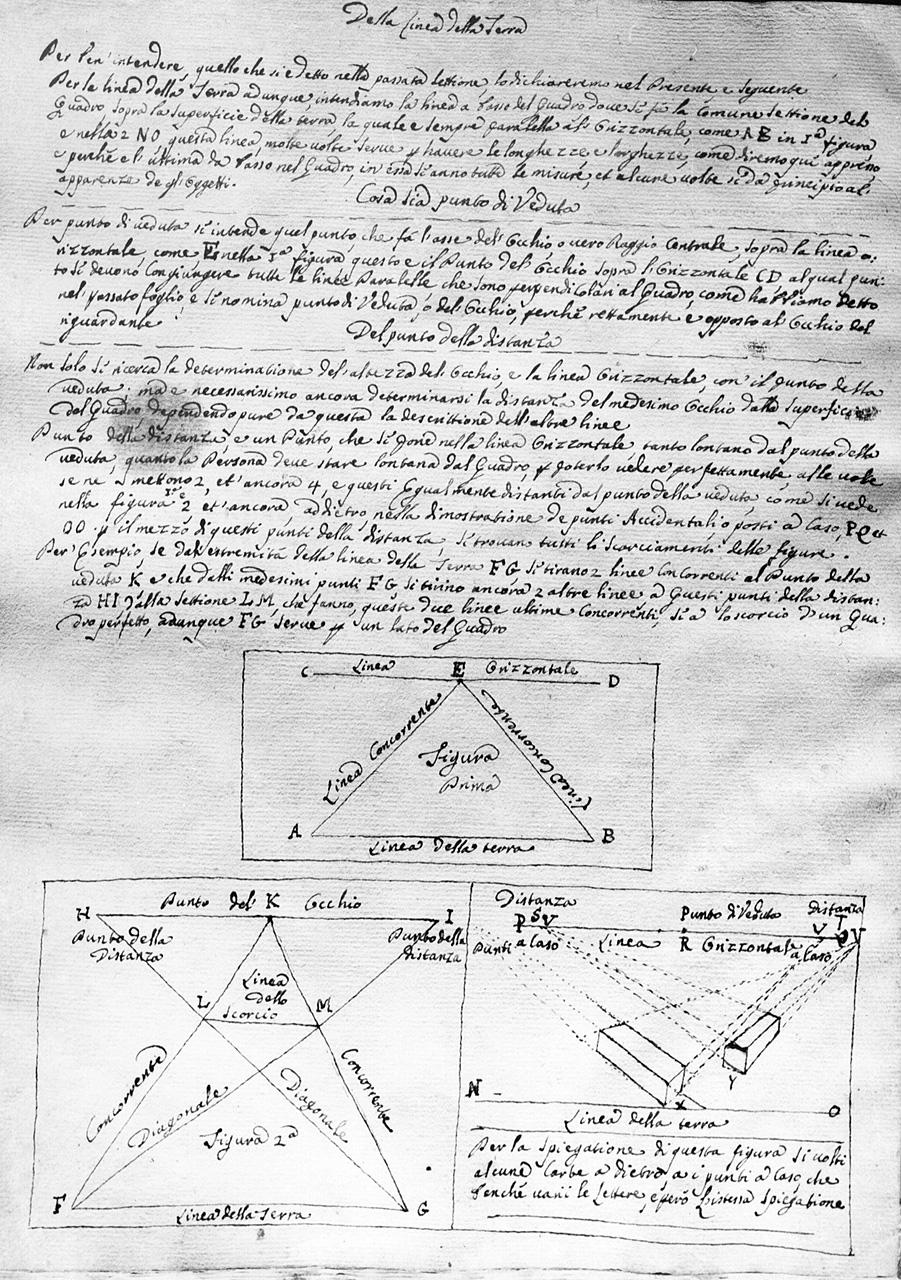 Della Linea della Terra
Per ben' intendere, quello che si e detto nella passata lettione lo dichiareremo nel Presente e seguente
Per la linea della Terra adunque intendiamo la linea à basso del Quadro dove si fà la comune settione del
Quadro sopra la superficie della terra la quale e sempre paralella all' Orizzontale, come AB in 1ª figura
e nella 2 NO questa linea, molte volte serve p havere le longhezze e larghezze, come diremo quì appresso
e perchè e l' ultima da basso nel Quadro, in essa si anno tutte le misure, et alcune volte si da principio al:
apparenza de gl' Oggetti.
Cosa sia punto di Veduta
Per punto di veduta si intende quel punto, che fà l' asse dell' Occhio o vero Raggio Centrale, sopra la linea o:
rizzontale, come E nella 1ª figura questo e il Punto dell' Occhio sopra l' Orizzontale CD al qual pun:
to si devono Congiungere tutte le linee Paralelle che sono perpendicolari al Quadro, come habbiamo detto
nel passato foglio, e si nomina punto di Veduta, ò dell' Occhio, perchè rettamente e opposto al Occhio del
riguardante
Del punto della distanza
Non solo si ricerca la determinatione dell' altezza dell' Occhio, e la linea Orizzontale, con' il punto della
veduta. ma e necessarissimo ancora determinarsi la distanza del medesimo Occhio dalla superficie
del Quadro dependendo pure da questa la descrittione dell' altre linee
Punto della distanza e un Punto, che si pone nella linea Orizzontale tanto lontano dal punto della
veduta, quanto la Persona deve stare lontana dal Quadro, p poterlo vedere perfettamente. alle volte
se ne mettono 2, et ancora 4, e questi Egualmente distanti dal punto della veduta come si vede
nella figura 2 et ancora addietro nella dimostratione de punti Accidentali o posti a Caso, PQ et
OO. p il mezzo di questi punti della distanza, si trovano tutti li scorciamenti delle figure.
Per Esempio se dal' estremità della linea della Terra FG si tirano 2 linee Concorrenti al Punto della
veduta K e che dalli medesimi punti FG si tirino ancora 2 altre linee a Questi punti della distan:
za HI dalla settione LM, che fanno, queste due linee ultime concorrenti, si a lo scorcio d' un Qua:
dro perfetto, adunque FG serve p un lato del Quadro
C Linea E Orizzontale D
Linea Concorrente
Linea Concorrente
Figura
Prima
A B
Linea della terra
H Punto del' K Occhio I
Punto della
Distanza
Punto della
distanza
Linea
dello
scorcio
L M
Concorrente
Concorrente
Diagonale
Diagonale
Figura 2ª
F G
Linea della Terra
Distanza Punto di Veduta distanza
P S V R V T Q V
Punti a Caso Linea Orizzontale a Caso
Y
N X O
Linea della terra
Per la spiegatione di questa figura si volti
alcune Carte a dietro a i punti a Caso, che
benchè varii le lettere, e però l' istessa spiegatione